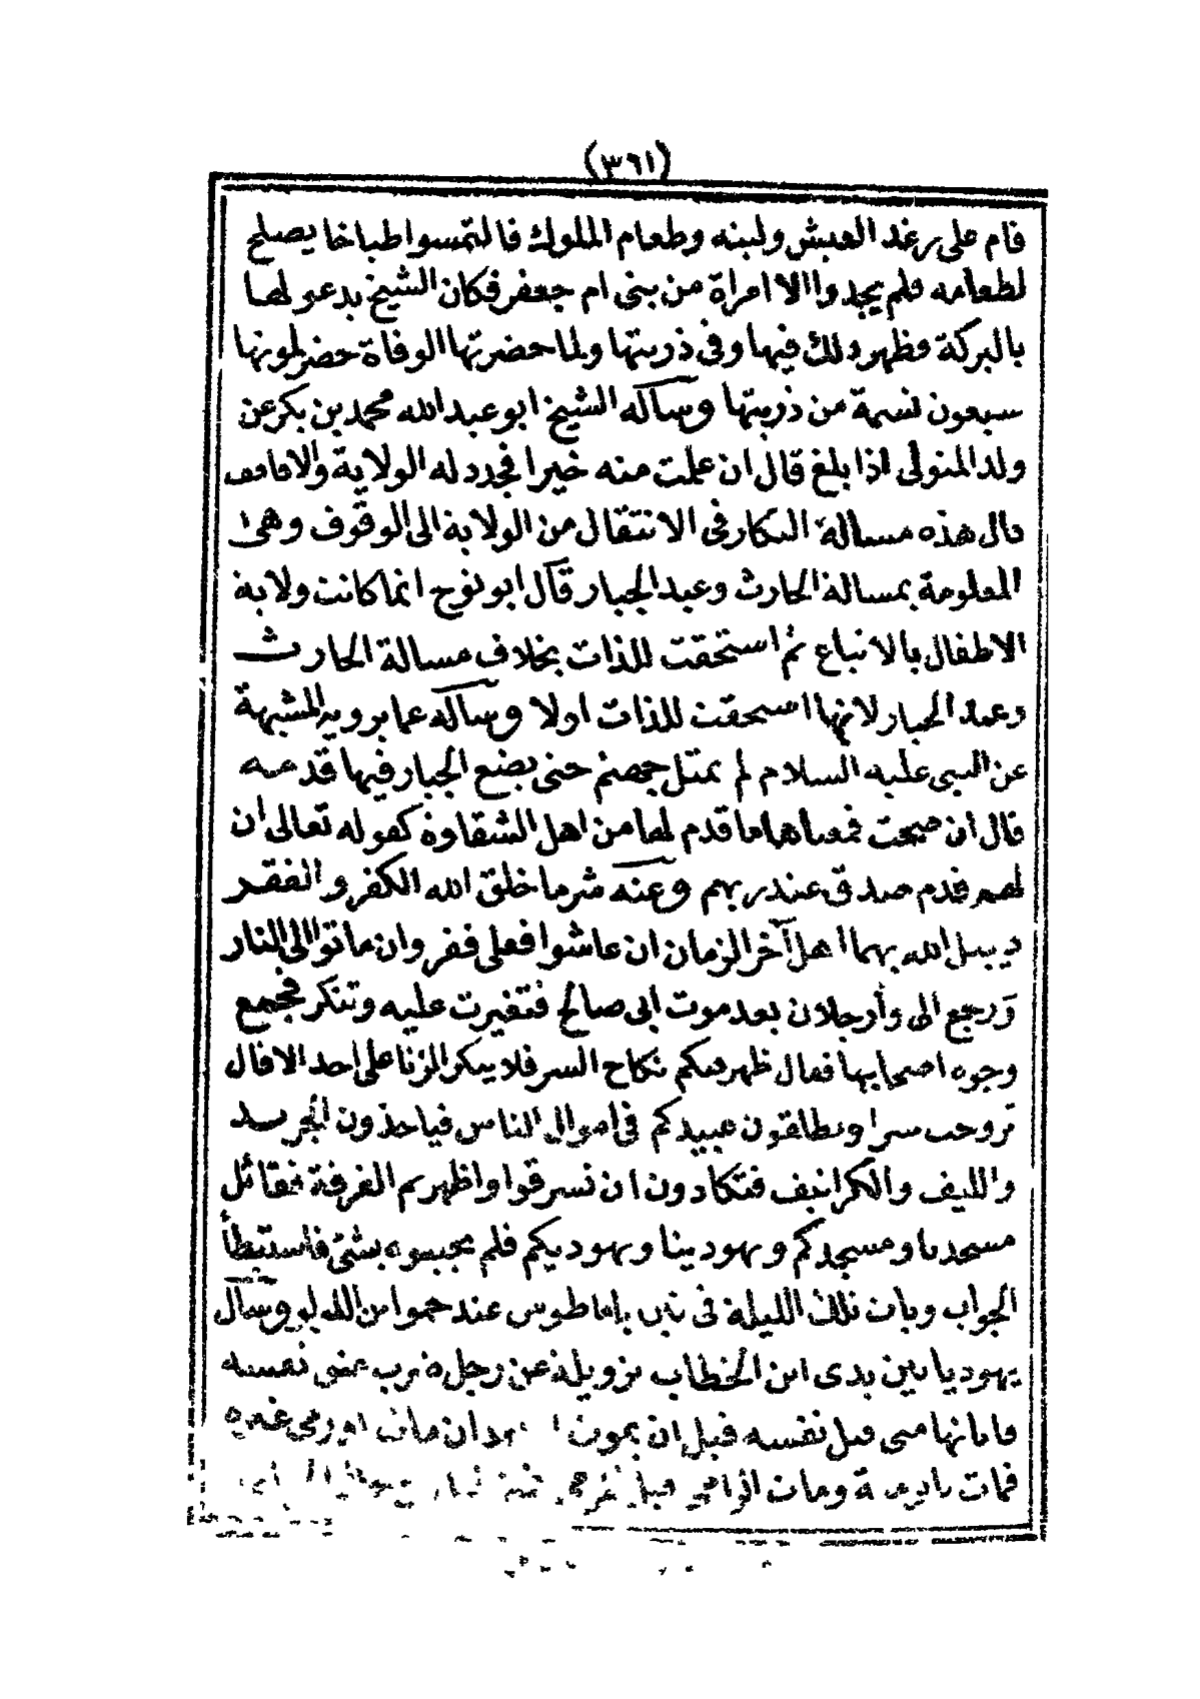 (٣٦١)
قام على رغد العيش ولينه وطعام الملوك فالتمسوا طباخا يصلح
لطعامه فلم يجدوا الا امراة من بنى ام جعفر فكان الشيخ يدعو لها
بالبركة فظهر ذلك فيها وفى ذريتها ولما حضرتها الوفاة حضر لموتها
سبعون نسمة من ذريتها وسأله الشيخ ابو عبد الله محمد بن بكر عن
ولد المتولى اذا بلغ قال ان علمت منه خيرا فجدد له الولاية والا فامسك
قال هذه مسالة النكار فى الانتقال من الولاية الى الوقوف وهى
المعلومة بمسالة الحارث وعبد الجبار قال ابو نوح انما كانت ولاية
الاطفال بالاتباع ثم استحقت للذات بخلاف مسالة الحارث
وعبد الجبار لانها استحقت للذات اولا وسأله عما يرويه المشبهة
عن النبى عليه السلام لم تمتل جهنم حتى يضع الجبار فيها قدمه
قال ان صحت فمعناها ما قدم لها من اهل الشقاوة كقوله تعالى ان
لهم قدم صدق عند ربهم وعنه شر ما خلق الله الكفر والفقر
يبتل الله بهما اهل آخر الزمان ان عاشوا فعلى فقر وان ماتوا الى النار
ورجع الى وارجلان بعد موت ابى صالح فتغيرت عليه وتنكر فجمع
وجوه اصحابها فقال ظهر فيكم نكاح السر فلا ينكر الزنا على احد الا قال
تزوجت سرا وتطلقون عبيدكم فى اموال الناس فياخذون الجريد
والليف والكرانيف فتكادون ان تسرقوا واظهرتم الفرقة فقائل
مسجدنا ومسجدكم ويهودينا ويهوديكم فلم يجيبوه بشئ فاستبطأ
الجواب وبات تلك الليلة فى باماطوس عند حموا بن اللؤلؤ وسأل
يهوديا بين يدى ابن الخطاب بزويلة عن رجل ضرب عنق نفسه
متى قتل نفسه قبل ان يموت ان مات غيره
فمات ومات الرامى قبل